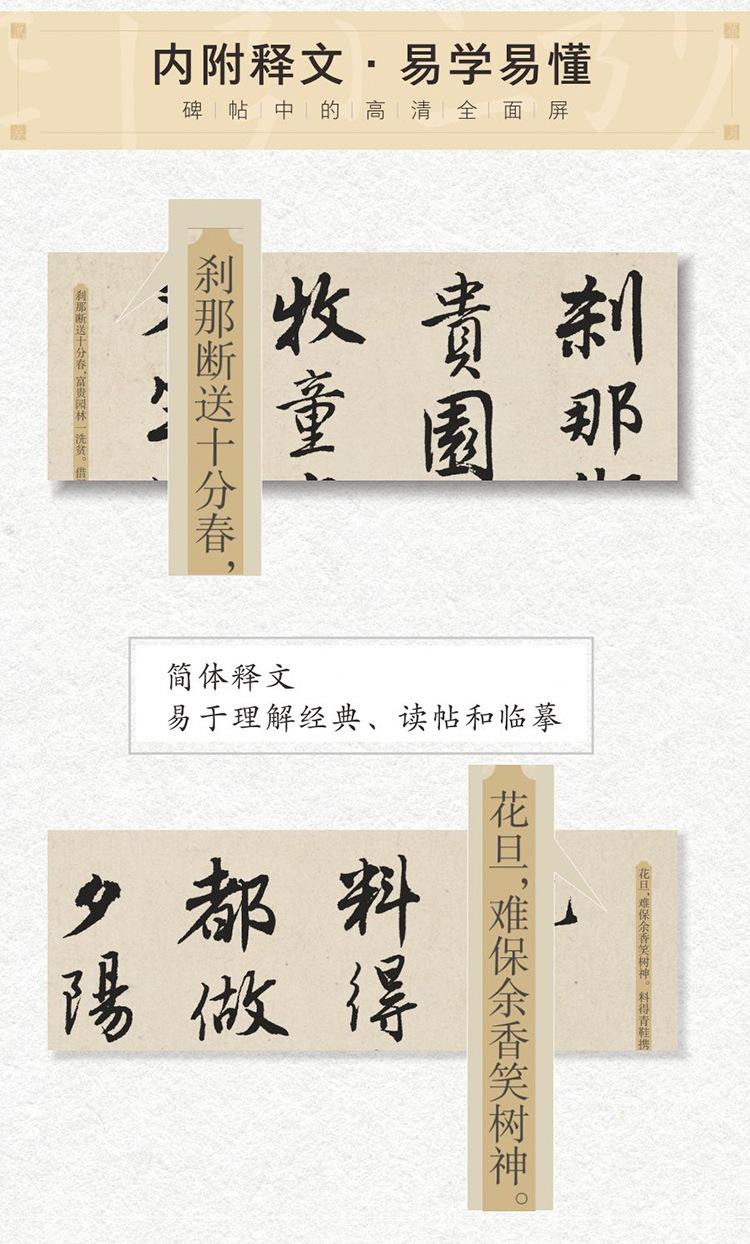 内附释文·易学易懂
碑帖中的高清全面屏
刹那
貴園
牧童
刹那断送十分春，
刹那断送十分春，富贵园林一洗贫。借
简体释文
易于理解经典、读帖和临摹
花旦，难保余香笑树神。料得青鞋携
花旦，难保余香笑树神。
料得
都做
夕陽